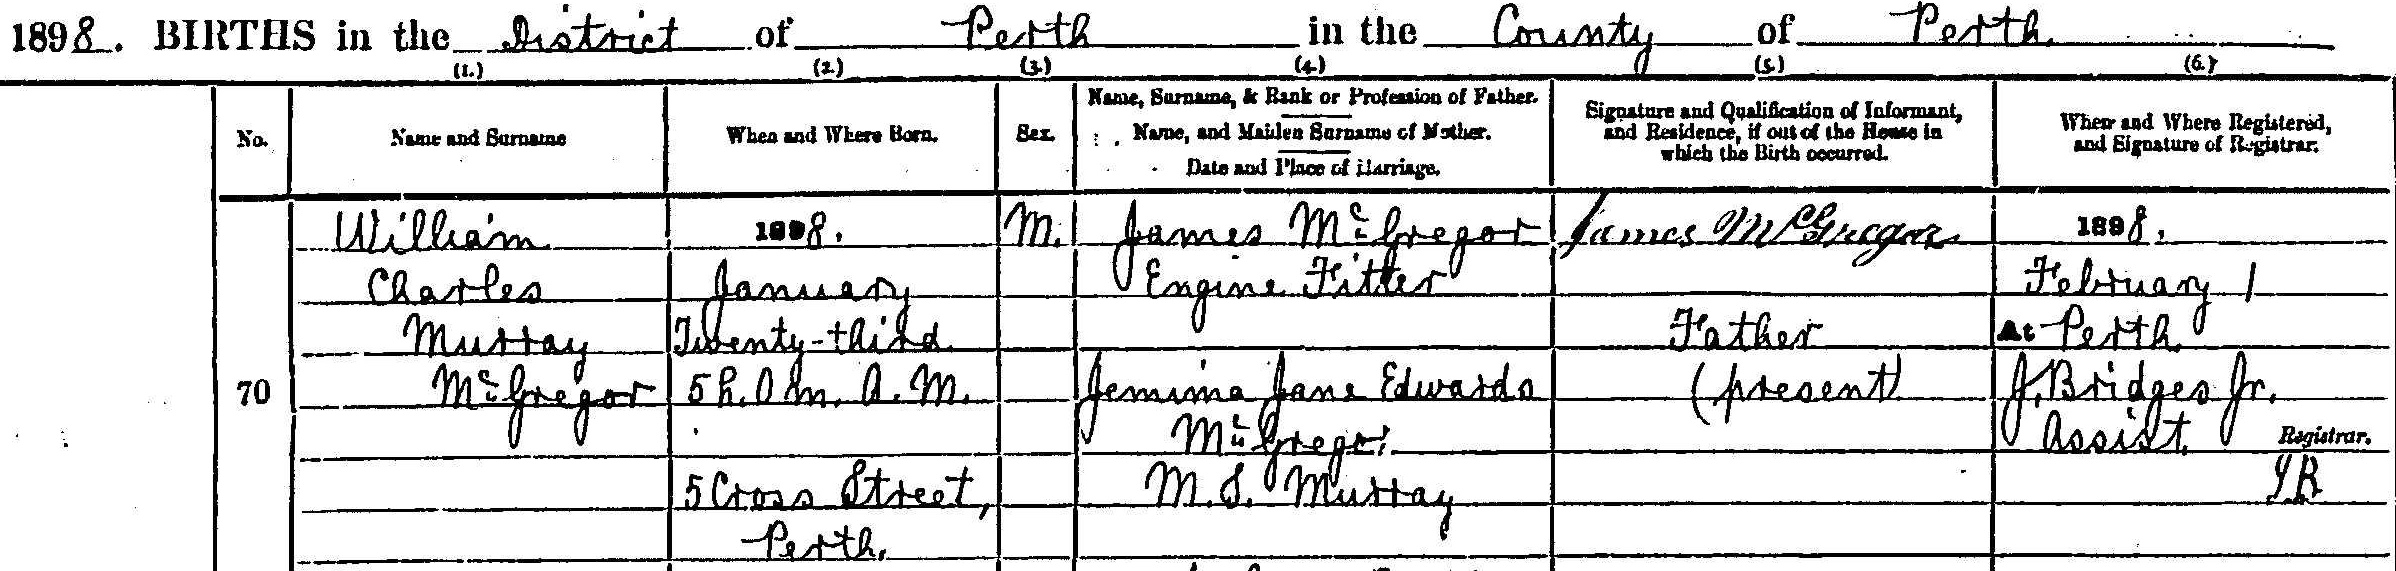 1898. BIRTHS in the District of Perth in the County of Perth.
(1.) (2.) (3.) (4.) (5.) (6.)
No.
Name and Surname
When and Where Born.
Sex.
Name, Surname, & Rank or Profession of Father.
Name, and Maiden Surname of Mother.
Date and Place of Marriage.
Signature and Qualification of Informant,
and Residence, if out of the House in
which the Birth occurred.
When and Where Registered,
and Signature of Registrar.
70
William
Charles
Murray
McGregor
1898.
January
Twenty-third
5 h. 0 m. A. M.
5 Cross Street,
Perth.
M.
James McGregor
Engine Fitter
Jemima Jane Edwards
McGregor
M.S. Murray
James McGregor
Father
(present)
1898.
February 1
At Perth
J. Bridges Jr.
Assist. Registrar.